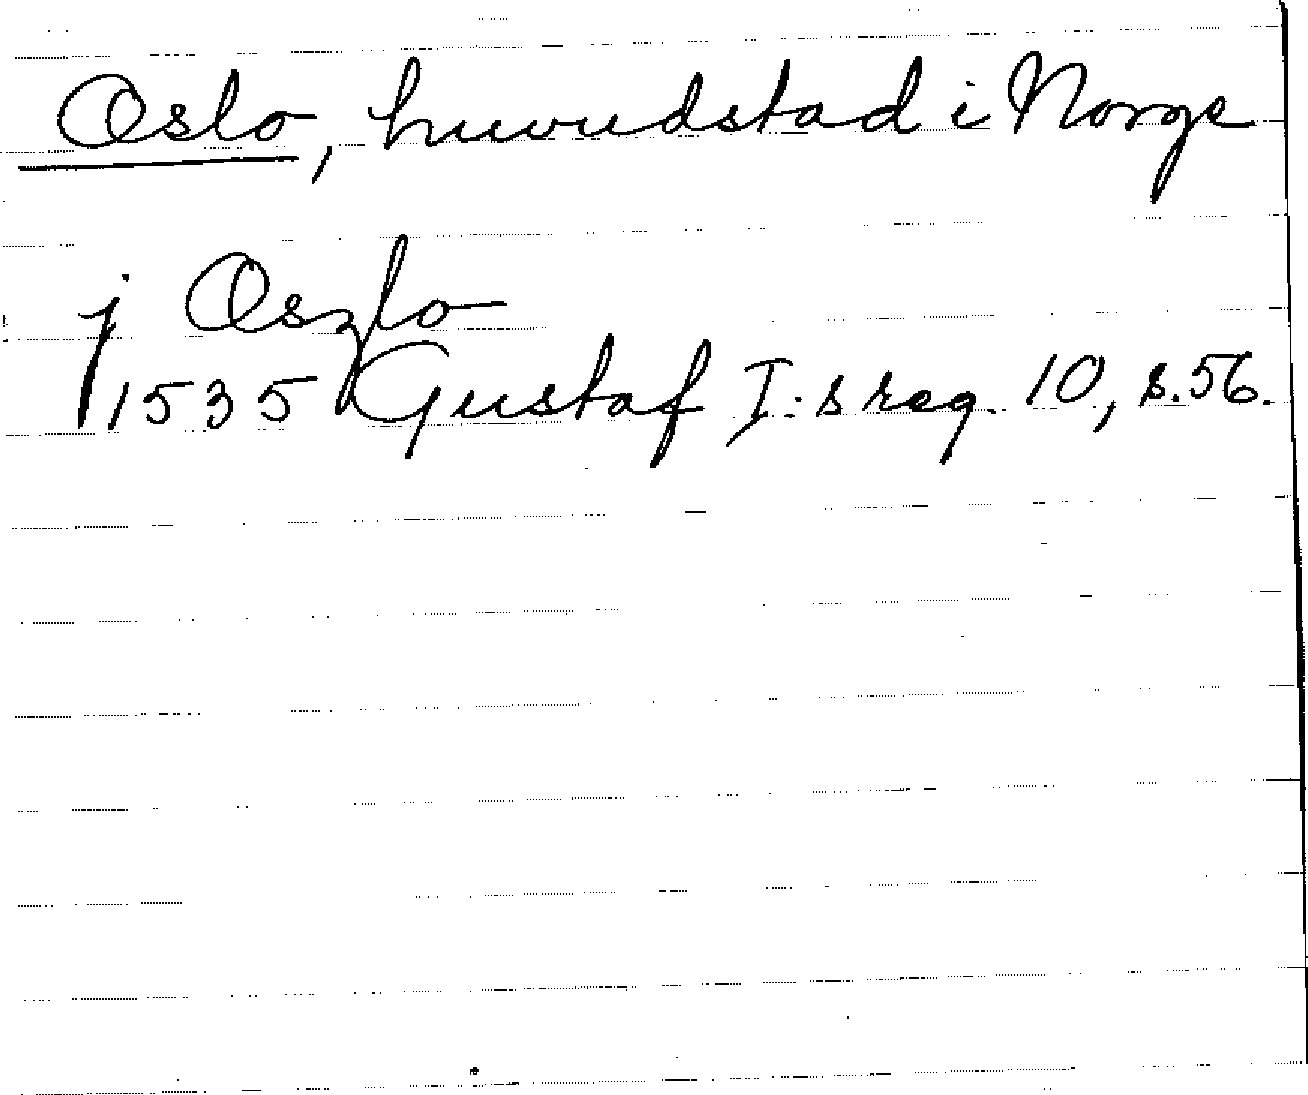 Oslo, huvudstad i Norge
j Oszlo
1535 Gustaf I:s reg. 10, s.56.